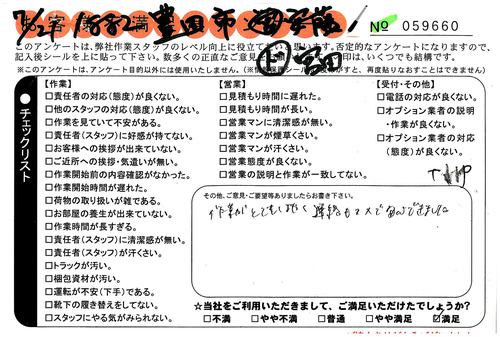 豊田市
№ 059660
このアンケートは、弊社作業スタッフのレベル向上に役立てたいと思います。否定的なアンケートになりますので、
記入後シールを上に貼って下さい。数多くの正直なご意見
印は、いくつでも結構です。
※このアンケートは、アンケート目的以外には使用いたしません。
(※
すと、再度貼りなおすことはできません)
チェックリスト
【作業】
□責任者の対応(態度)が良くない。
□他のスタッフの対応(態度)が良くない。
□作業を見ていて不安がある。
□責任者(スタッフ)に好感が持てない。
□お客様への挨拶が出来ていない。
□ご近所への挨拶・気遣いが無い。
□作業開始前の内容確認がなかった。
□作業開始時間が遅れた。
□荷物の取り扱いが雑である。
□お部屋の養生が出来ていない。
□作業時間が長すぎる。
□責任者(スタッフ)に清潔感が無い。
□責任者(スタッフ)が汗くさい。
□トラックが汚い。
□梱包資材が汚い。
□運転が不安(下手)である。
□靴下の履き替えをしてない。
□スタッフにやる気がみられない。
【営業】
□見積もり時間に遅れた。
□見積もり時間が長い。
□営業マンに清潔感が無い。
□営業マンが煙草くさい。
□営業マンが汗くさい。
□営業態度が良くない。
□営業の説明と作業が一致してない。
【受付・その他】
□電話の対応が良くない。
□オプション業者の説明
・作業が良くない。
□オプション業者の対応
(態度)が良くない。
その他、ご意見・ご要望等ありましたらお書き下さい。
☆当社をご利用いただきまして、ご満足いただけたでしょうか?
□不満 □やや不満 □普通 □やや満足 ☑満足